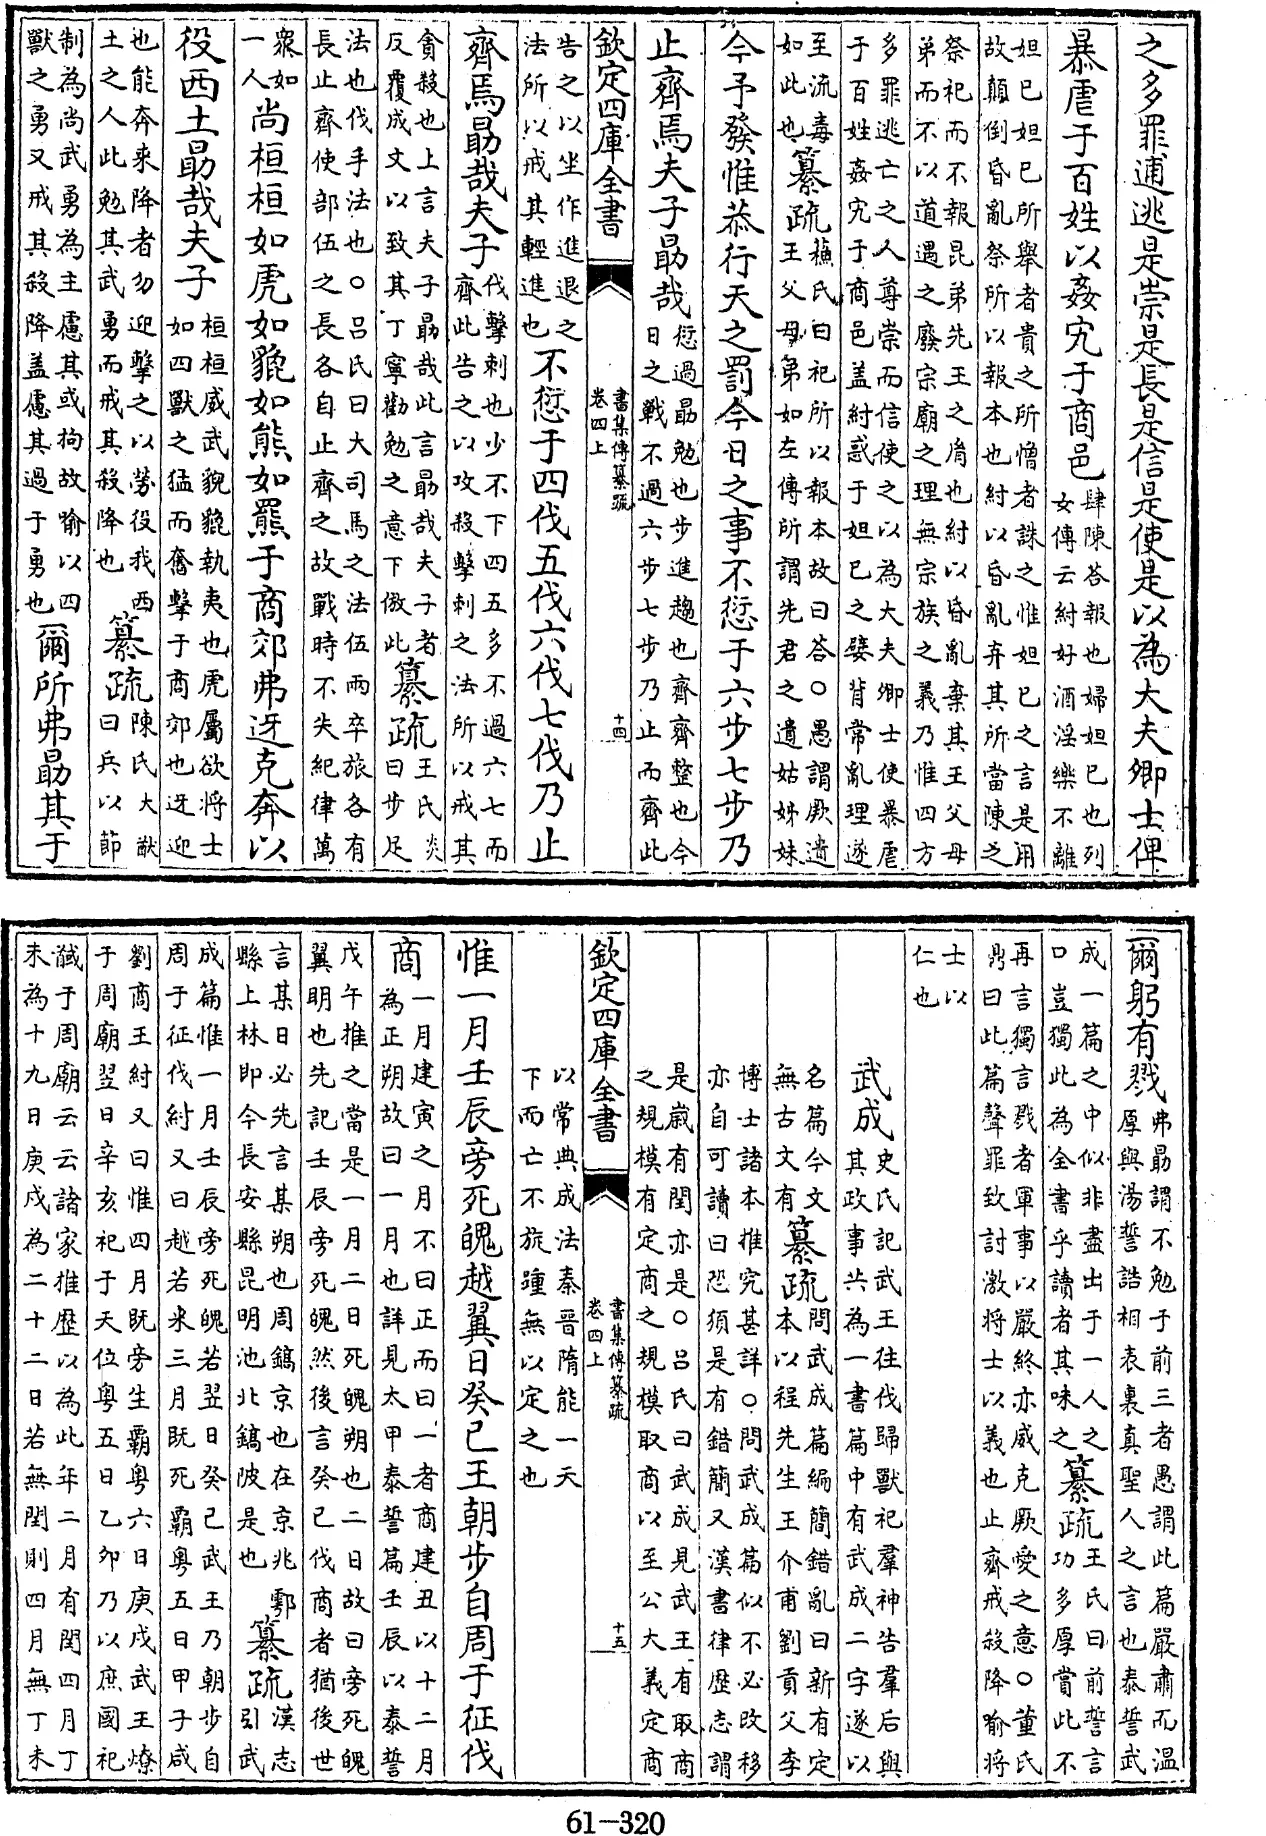 之多罪逋逃是崇是長是信是使是以為大夫卿士俾
暴虐于百姓以姦宄于商邑
肆陳荅報也婦妲已也列
女傳云紂好酒淫樂不離
妲已妲已所舉者貴之所憎者誅之惟妲已之言是用
故顛倒昏亂祭所以報本也紂以昏亂弃其所當陳之
祭祀而不報昆弟先王之胄也紂以昏亂棄其王父母
弟而不以道遇之廢宗廟之理無宗族之義乃惟四方
多罪逃亡之人尊崇而信使之以為大夫卿士使暴虐
于百姓姦宄于商邑盖紂惑于妲已之嬖背常亂理遂
至流毒
如此也
纂疏
蘓氏曰祀所以報本故曰荅○愚謂厥遺
王父母弟如左傳所謂先君之遺姑姊妹
今予發惟恭行天之罰今日之事不愆于六步七步乃
止齊焉夫子勗哉
愆過勗勉也步進趨也齊齊整也今
日之戰不過六步七步乃止而齊此
欽定四庫全書
書集傳纂疏
卷四上
十四
告之以坐作進退之
法所以戒其輕進也
不愆于四伐五伐六伐七伐乃止
齊焉勗哉夫子
伐擊刺也少不下四五多不過六七而
齊此告之以攻殺擊刺之法所以戒其
貪殺也上言夫子勗哉此言勗哉夫子者
反覆成文以致其丁寧勸勉之意下倣此
纂疏
王氏炎
曰步足
法也伐手法也○吕氏曰大司馬之法伍兩卒旅各有
長止齊使部伍之長各自止齊之故戰時不失紀律萬
衆如
一人
尚桓桓如虎如貔如熊如羆于商郊弗迓克奔以
役西土勗哉夫子
桓桓威武貌貔執夷也虎屬欲將士
如四獸之猛而奮擊于商郊也迓迎
也能奔來降者勿迎擊之以勞役我西
土之人此勉其武勇而戒其殺降也
纂疏
陳氏大猷
曰兵以節
制為尚武勇為主慮其或拘故喻以四
獸之勇又戒其殺降盖慮其過于勇也
爾所弗勗其于
爾躬有戮
弗勗謂不勉于前三者愚謂此篇嚴肅而溫
厚與湯誓誥相表裏真聖人之言也泰誓武
成一篇之中似非盡出于一人之
口豈獨此為全書乎讀者其味之
纂疏
王氏曰前誓言
功多厚賞此不
再言獨言戮者軍事以嚴終亦威克厥愛之意○董氏
鼎曰此篇聲罪致討激將士以義也止齊戒殺降喻將
士以
仁也
武成
史氏記武王往伐歸獸祀羣神告羣后與
其政事共為一書篇中有武成二字遂以
名篇今文
無古文有
纂疏
問武成篇編簡錯亂曰新有定
本以程先生王介甫劉貢父李
博士諸本推究甚詳○問武成篇似不必改移
亦自可讀曰恐須是有錯簡又漢書律歷志謂
是嵗有閏亦是○吕氏曰武成見武王有取商
之規模有定商之規模取商以至公大義定商
欽定四庫全書
書集傳纂疏
卷四上
十五
以常典成法秦晉隋能一天
下而亡不旋踵無以定之也
惟一月壬辰旁死魄越翼日癸已王朝步自周于征伐
商
一月建寅之月不曰正而曰一者商建丑以十二月
為正朔故曰一月也詳見太甲泰誓篇壬辰以泰誓
戊午推之當是一月二日死魄朔也二日故曰旁死魄
翼明也先記壬辰旁死魄然後言癸已伐商者猶後世
言某日必先言某朔也周鎬京也在京兆鄠
縣上林即今長安縣昆明池北鎬陂是也
纂疏
漢志
引武
成篇惟一月壬辰旁死魄若翌日癸已武王乃朝步自
周于征伐紂又曰越若來三月既死霸粤五日甲子咸
劉商王紂又曰惟四月既旁生霸粤六日庚戌武王燎
于周廟翌日辛亥祀于天位粤五日乙夘乃以庶國祀
馘于周廟云云諸家推歷以為此年二月有閏四月丁
未為十九日庚戌為二十二日若無閏則四月無丁未
61-320